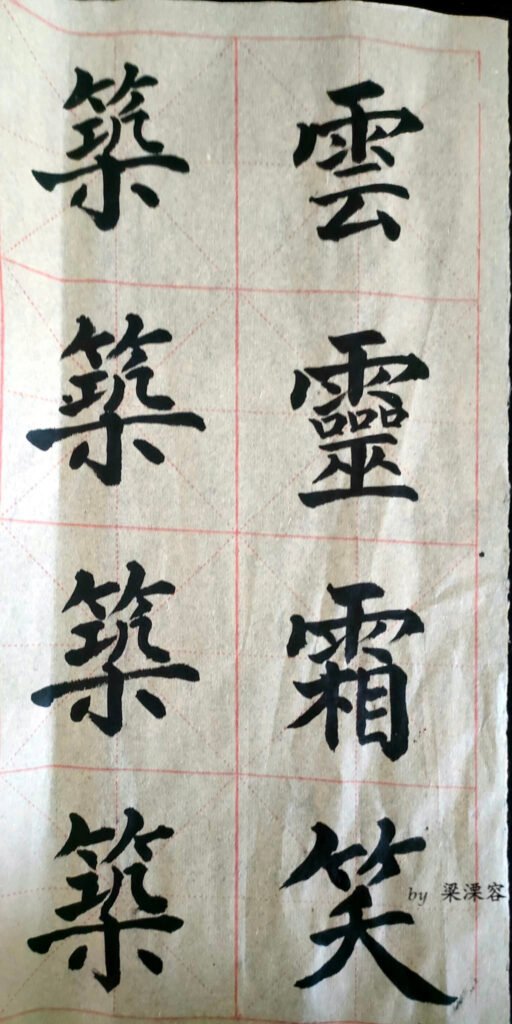 雲靈霜笑
築築築築
by 梁溧容